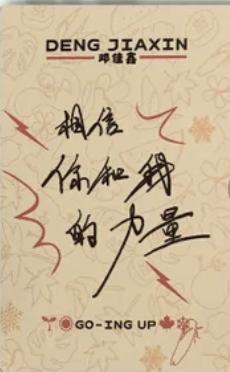 DENG JIAXIN
邓佳鑫
相信
你和我
的力量
GO-ING UP